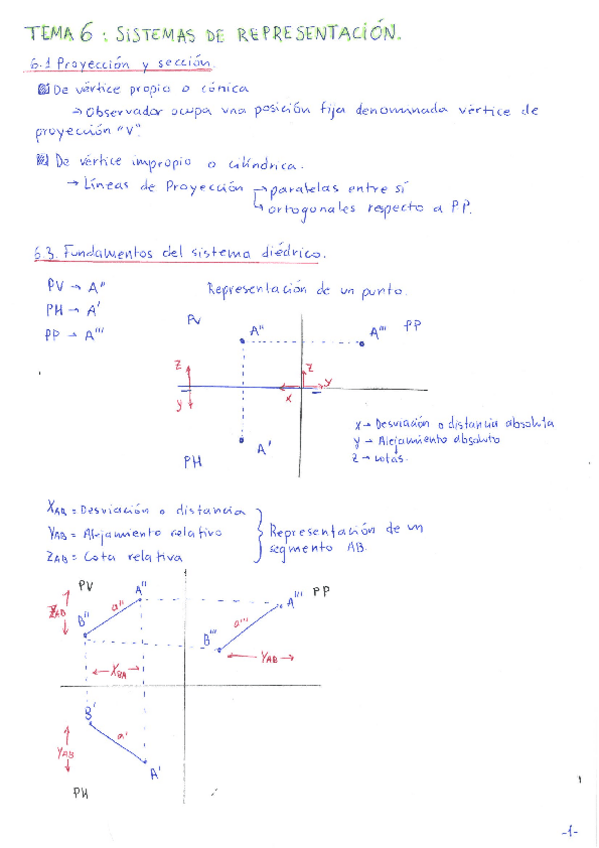 TEMA 6: SISTEMAS DE REPRESENTACIÓN.
6.1 Proyección y sección.
De vértice propio o cónica
→ Observador ocupa una posición fija denominada vértice de
proyección "V".
De vértice impropio o cilíndrica.
→ Líneas de Proyección → paralelas entre sí
↳ ortogonales respecto a PP.
6.3. Fundamentos del sistema diédrico.
PV → A''
PH → A'
PP → A'''
Representación de un punto.
PV
A''
A'''
PP
z
z
y
x
y
A'
PH
x → Desviación o distancia absoluta
y → Alejamiento absoluto
z → cotas.
XAB = Desviación o distancia
YAB = Alejamiento relativo
ZAB = Cota relativa
Representación de un
segmento AB.
PV
A''
PP
A'''
ZAB
a''
B''
a'''
B'''
YAB
XBA
B'
a'
YAB
A'
PH
-1-